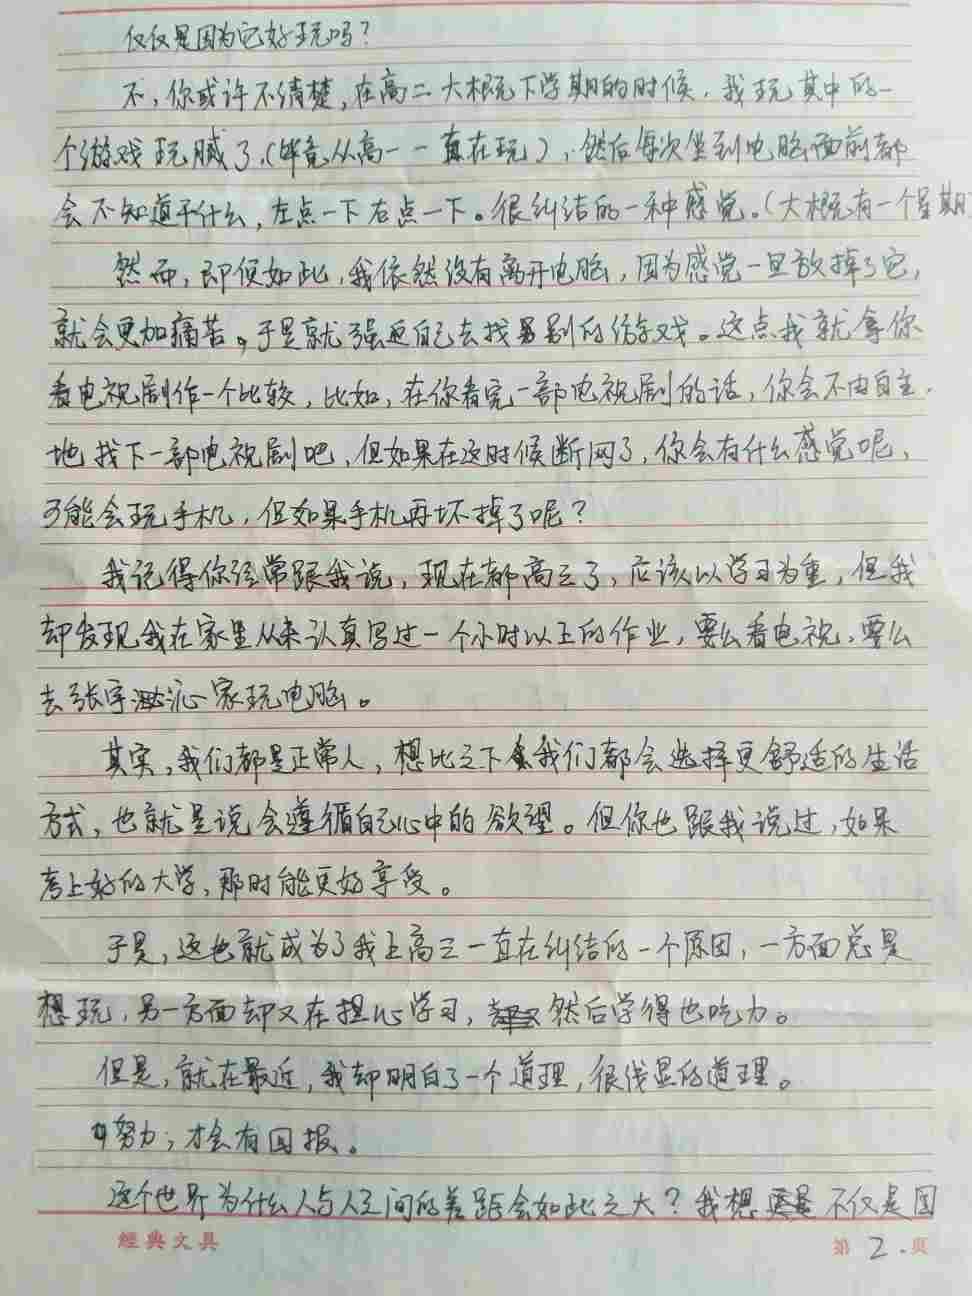 仅仅是因为它好玩吗？
不，你或许不清楚，在高二大概下学期的时候，我玩其中的一
个游戏玩腻了，（毕竟从高一一直在玩），然后每次坐到电脑面前都
会不知道干什么，左点一下右点一下。很纠结的一种感觉。（大概有一个星期
然而，即便如此，我依然没有离开电脑，因为感觉一旦放掉了它，
就会更加痛苦。于是就强迫自己去找别的游戏。这点我就拿你
看电视剧作一个比较，比如，在你看完一部电视剧的话，你会不由自主
地找下一部电视剧吧，但如果在这时候断网了，你会有什么感觉呢，
可能会玩手机，但如果手机再坏掉了呢？
我记得你经常跟我说，现在都高三了，应该以学习为重，但我
却发现我在家里从未认真写过一个小时以上的作业，要么看电视，要么
去张宇沁家玩电脑。
其实，我们都是正常人，想比之下我们都会选择更舒适的生活
方式，也就是说会遵循自己心中的欲望。但你也跟我说过，如果
考上好的大学，那时能更好享受。
于是，这也就成为了我上高三一直在纠结的一个原因，一方面总是
想玩，另一方面却又在担心学习，然后学得也吃力。
但是，就在最近，我却明白了一个道理，很浅显的道理。
努力，才会有回报。
这个世界为什么人与人之间的差距会如此之大？我想不仅是因
經典文具
第2.页